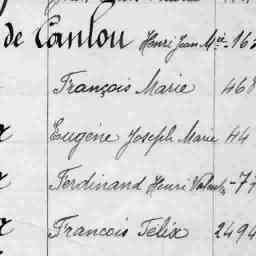 de Canlou Henri Jean Mie 16
François Marie 468
Eugène Joseph Marie 44
Ferdinand Henri Valentin 77
Francois Felix 2494